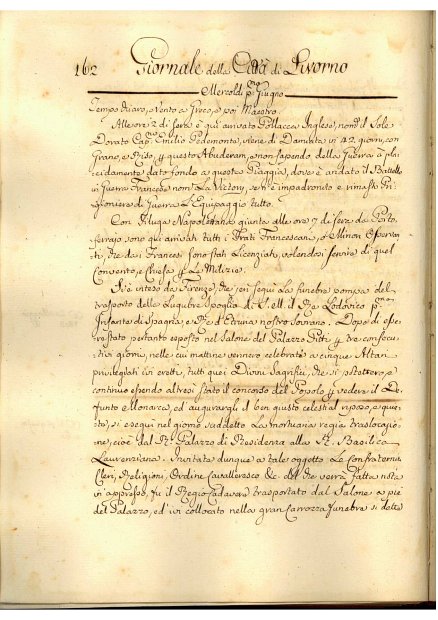 162 Giornale della Città di Livorno
Mercoldì p.mo Giugno
Tempo chiaro, e vento a Greco, e poi Maestro.
Alle ore 2 di sera è qui arrivato Pollacca Inglese, nom.a il Sole
Dorato Cap. Emilio Pedemonte, viene di Damiata in 42 giorni, con
Grano, e Riso, p questo Abuderam, e non sapendo della Guerra à pla-
cidamente dato fondo a questa Piaggia, dove è andato il Battello
in Guerra Francese nom.o La Victory, se n'è impadronito e rimasto Pri-
gioniere di Guerra L'Equipaggio tutto.
Con Filuga Napoletana giunta alle ore 7 di sera da Porto
ferrajo sono qui arrivati tutti i Frati Francescani, o Minori Osservan-
ti, che da i Francesi sono stati Licenziati, volendosi servire di quel
Convento, e Chiesa p Le Milizie.
Si è inteso da Firenze, che jeri seguì La funebre pompa del
trasporto della Lugubre spoglia di S. M. il Re Lodovico p.mo
Infante di Spagna, e Re d'Etruria nostro Sovrano. Dopo di esse-
re stato pertanto esposto nel Salone del Palazzo Pitti p tre consecu-
tivi giorni, nelle cui mattine vennero celebrati a cinque Altari
privilegiati ivi eretti, tutti quei Divini Sagrifizj, che si potettero, e
continuo essendo altresì stato il concorso del Popolo p vedere il De-
funto Monarca, ed augurargli il ben giusto celestial riposo, e que-
sto, si eseguì nel giorno suddetto La mortuaria regia traslocazio-
ne, cioè dal R. Palazzo di Residenza alla R. Basilica
Laurenziana. Invitate dunque a tale oggetto Le Confraternite
Cleri, Religioni, Ordine Cavalleresco &c. del che verrà fatta nota
in appresso, fu il Regio Cadavere trasportato dal Salone a piè
del Palazzo, ed ivi collocato nella gran Carrozza funebre si dette